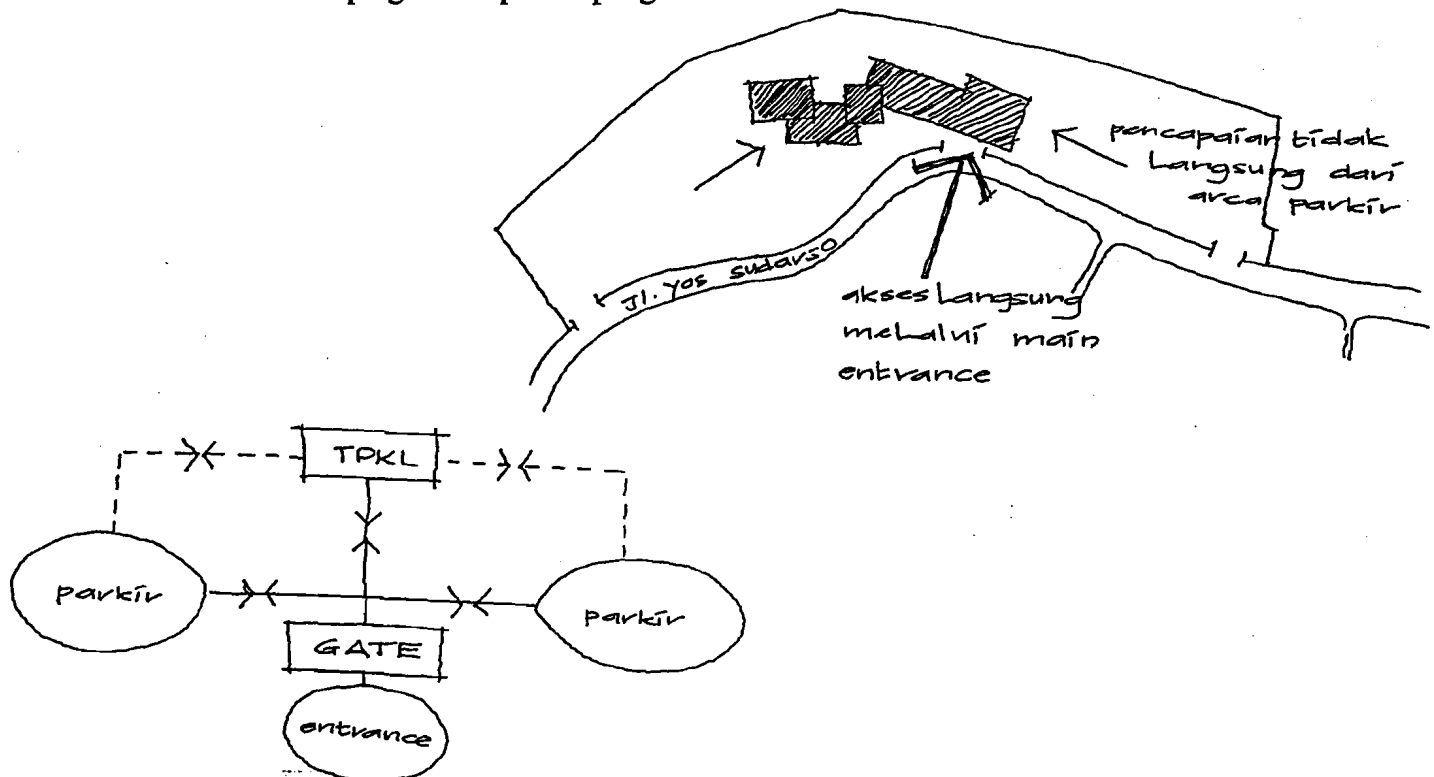 pencapaian tidak
Langsung dari
area parkir
Jl. Yos Sudarso
akses Langsung
melalui main
entrance
TPKL
parkir
parkir
GATE
entrance